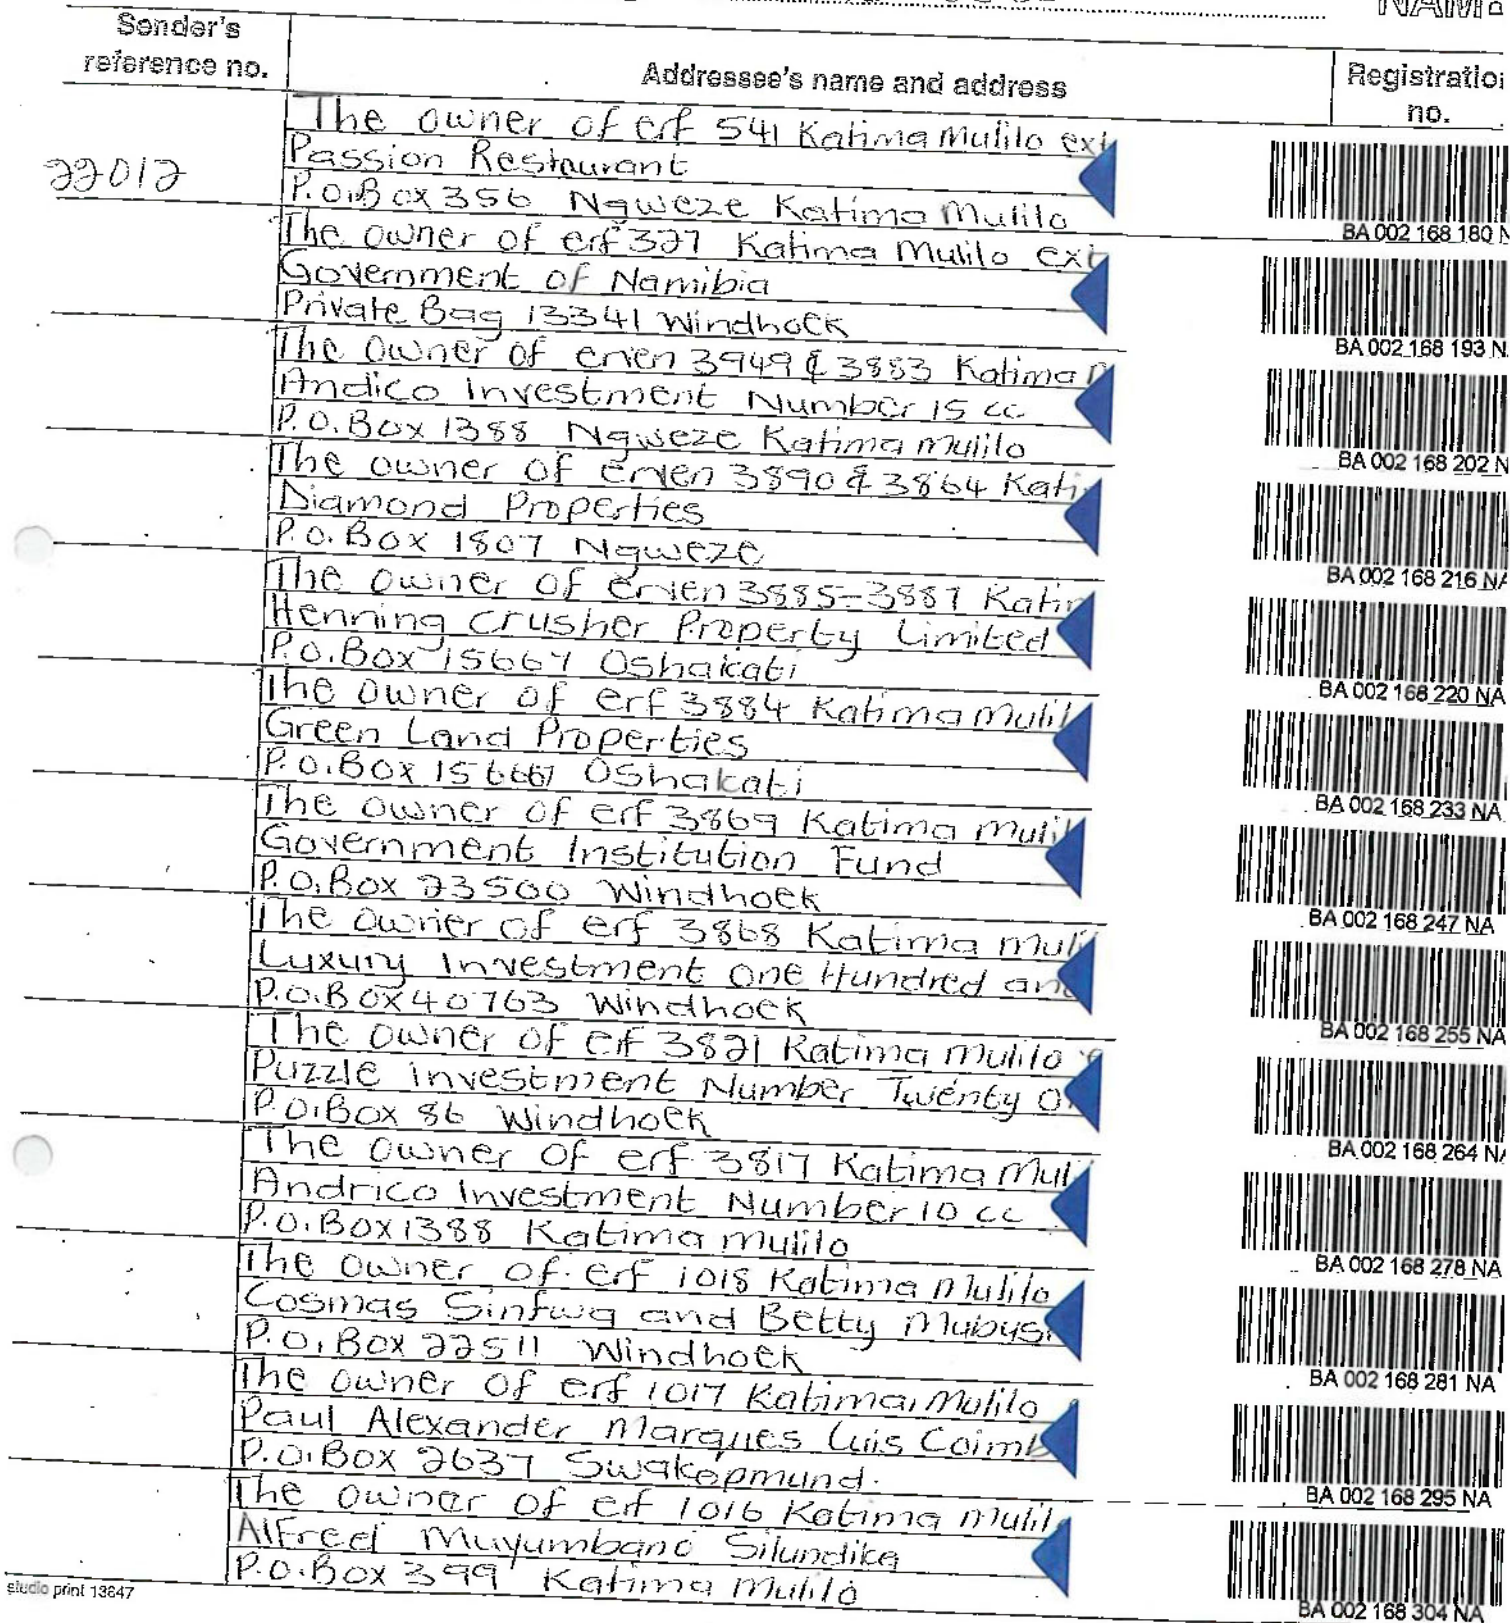 Sender's
reference no.
Addressee's name and address
Registration
no.
22012
The owner of erf 541 Katima Mulilo ext
Passion Restaurant
P.O.Box 356 Ngweze Katima Mulilo
BA 002 168 180 N
The owner of erf 327 Katima Mulilo ext
Government of Namibia
Private Bag 13341 Windhoek
BA 002 168 193 N
The owner of erven 3949 & 3883 Katima
Andico Investment Number 15 cc
P.O.Box 1388 Ngweze Katima mulilo
BA 002 168 202 N
The owner of erven 3890 & 3864 Kati
Diamond Properties
P.O.Box 1807 Ngweze
BA 002 168 216 NA
The owner of erven 3885-3887 Katim
Henning crusher Property Limited
P.O.Box 15667 Oshakati
BA 002 168 220 NA
The owner of erf 3884 Katima Mulil
Green Land Properties
P.O.Box Oshakati
BA 002 168 233 NA
The owner of erf 3869 Katima Mulil
Government Institution Fund
P.O.Box 23500 Windhoek
BA 002 168 247 NA
The owner of erf 3868 Katima muli
Luxury Investment One Hundred and
P.O.Box 40763 Windhoek
BA 002 168 255 NA
The owner of erf 3821 Katima Mulilo
Puzzle investment Number Twenty O
P.O.Box 86 Windhoek
BA 002 168 264 NA
The owner of erf 3817 Katima Mul
Andrico Investment Number 10 cc
P.O.Box 1388 Katima mulilo
BA 002 168 278 NA
The owner of erf 1018 Katima Mulilo
Cosmas Sinfwa and Betty Mubusi
P.O.Box 22511 Windhoek
BA 002 168 281 NA
The owner of erf 1017 Katima Mulilo
Paul Alexander Marques Luis Coimb
P.O.Box 2637 Swakopmund.
BA 002 168 295 NA
The owner of erf 1016 Katima Mulil
Alfred Muyumbano Silundika
P.O.Box 399 Katima Mulilo
BA 002 168 304 NA
studio print 13647